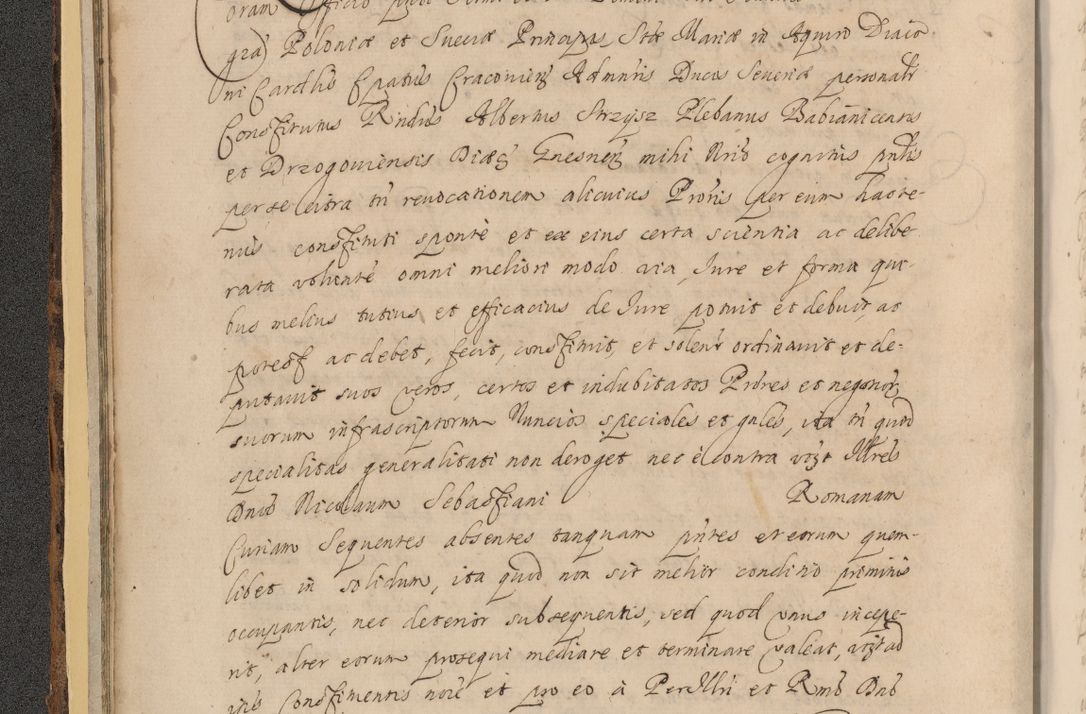 oram Officio
gra) Poloniæ et Sueciæ Principis, Stæ Mariæ in Aquiro Diaco
ni Cardlis Epatus Cracovien Admnris Ducis Severiæ personalr
Constitutus Rndus Albertus Strzysz Plebanus Babianiccensis
et Drzogoviensis Diæc Gnesnen mihi Nrio cognitus pntis
per se citra tn revocationem alicuius Proris per eum hacte-
nus constituti sponte et ex eius certa scientia ac delibe
rata volunte omni meliori modo via, Jure et forma qui-
bus melius tutius et efficacius de Jure potuit et debuit, ac
potest ac debet, fecit, constituit, et solenr ordinavit et de-
putavit suos veros, certos et indubitatos Prores et negonor
suorum infrascriptorum Nuncios speciales et gnles, ita tn quod
specialitas generalitati non deroget nec è contra vozt Illres
Dnos Nicolaum Sebastiani Romanam
Curiam Sequentes absentes tanquam pntes et eorum quem-
libet in solidum, ita quod non sit melior conditio primius
occupantis, nec deterior subsequentis, sed quod unus incepe-
rit, alter eorum prosequi mediare et terminare valeat, vozt ad
Constituentis noie et pro eo à Perillri et Rmo Dno